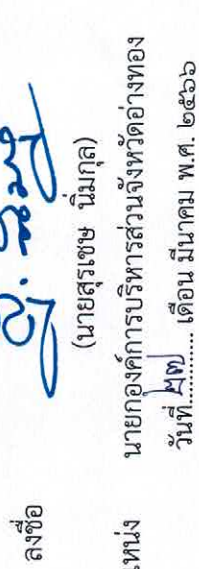 ลงชื่อ
(นายสุรเชษ นิ่มกุล)
หน่ง นายกองค์การบริหารส่วนจังหวัดอ่างทอง
วันที่ ๒๗ เดือน มีนาคม พ.ศ. ๒๕๖๖